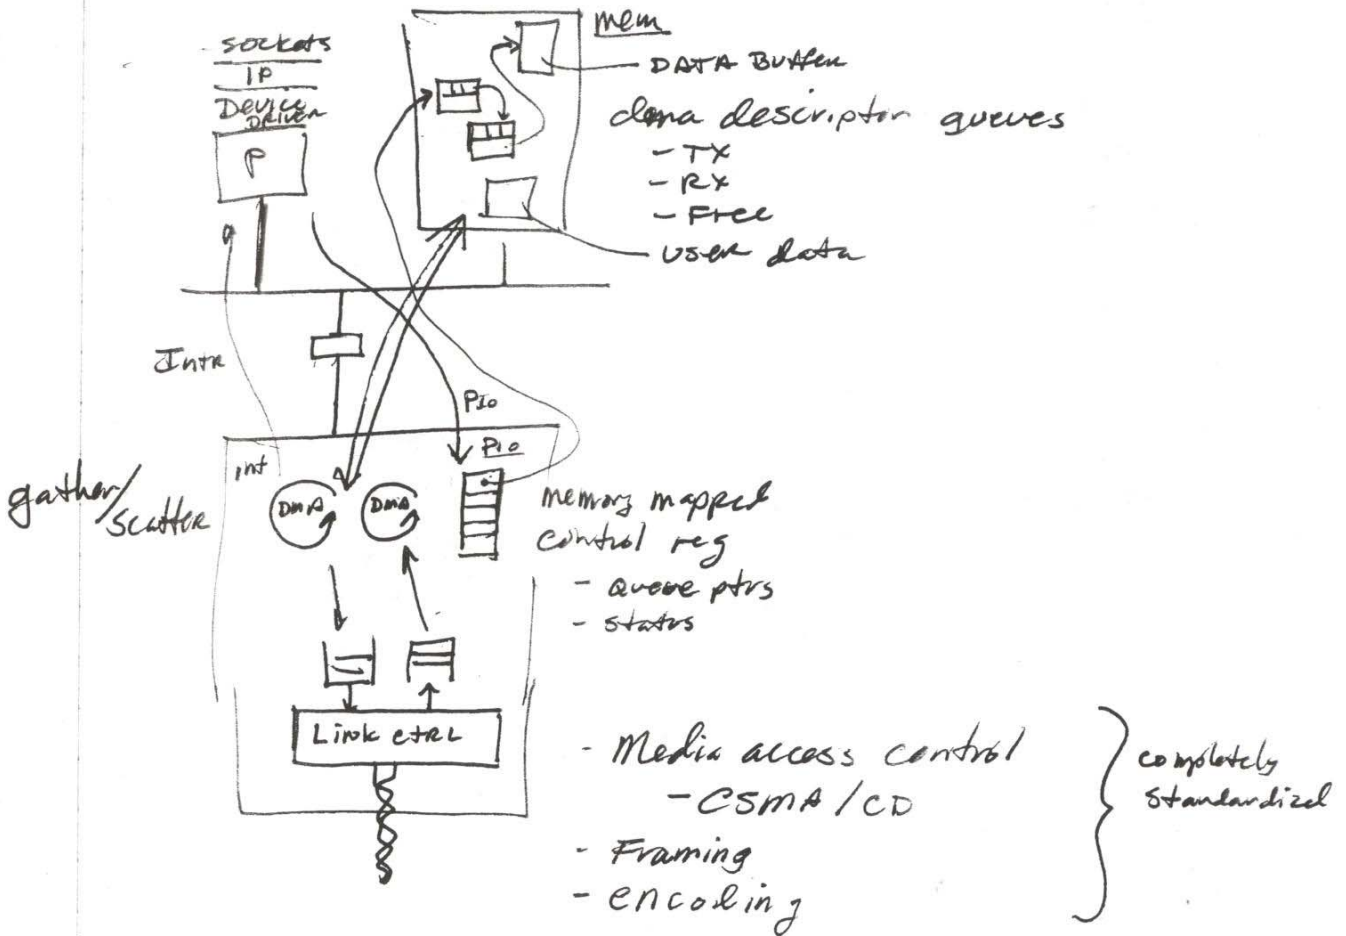 sockets
IP
Device
DRIVER
P
mem
DATA Buffer
dma descriptor queues
- TX
- RX
- Free
user data
Intr
PIO
PIO
int
gather/
scatter
DMA
DMA
memory mapped
control reg
- Queue ptrs
- status
Link CTRL
- Media access control
- CSMA/CD
- Framing
- encoding
completely
standardized